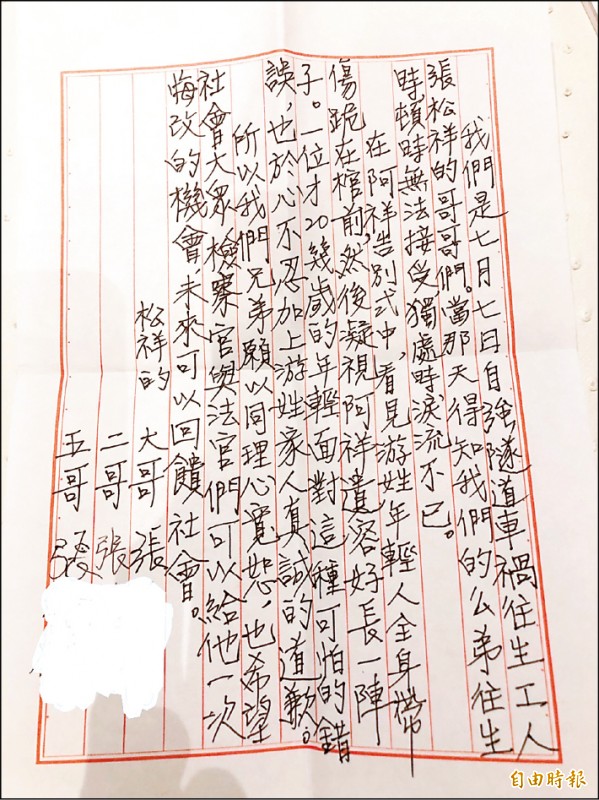 我們是七月七日自強隧道車禍往生工人
張松祥的哥哥們。當那天得知我們的么弟往生
時頓時無法接受獨處時淚流不已。
在阿祥告別式中,看見游姓年輕人全身帶
傷跪在棺前,然後凝視阿祥遺容好長一陣
子。一位才20幾歲的年輕面對這種可怕的錯
誤,也於心不忍加上游姓家人真誠的道歉。
所以我們兄弟願以同理心寬恕,也希望
社會大眾、檢察官與法官們可以給他一次
悔改的機會未來可以回饋社會。
松祥的 大哥 張
二哥 張
五哥 張
自由時報